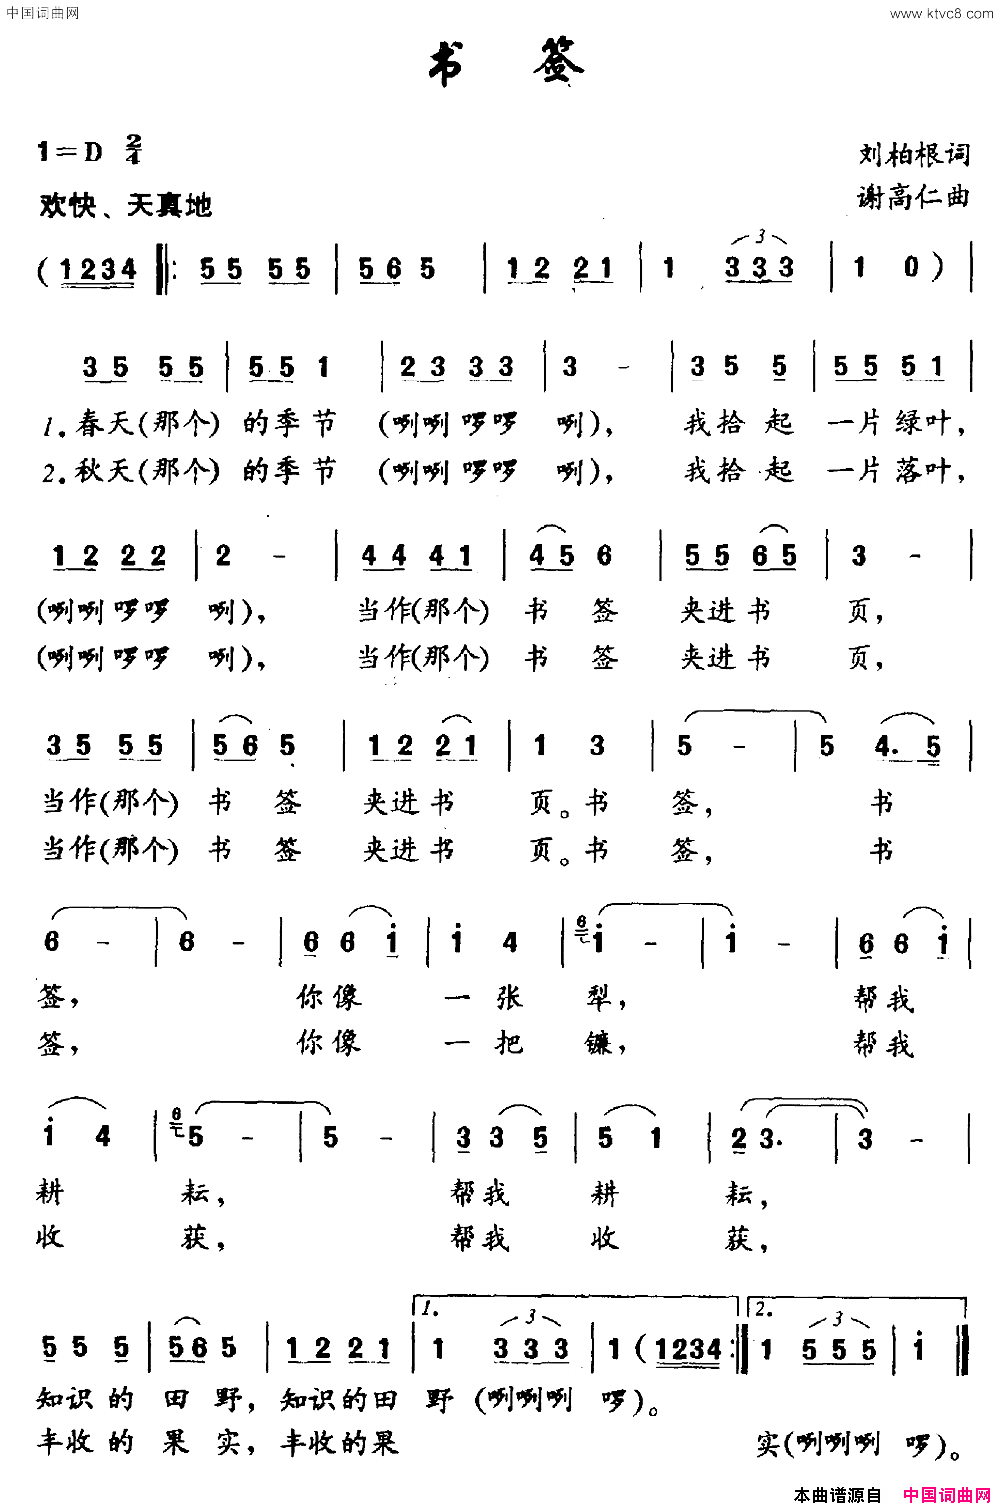 中国词曲网 www.ktvc8.com
书 签
1=D 2/4 刘柏根词
欢快、天真地 谢高仁曲
(1234 ‖: 55 55 | 565 | 12 21 | 1 333 | 1 0) |
35 55 | 55 1 | 23 33 | 3 - | 35 5 | 55 51 |
1.春天(那个) 的季节 (咧咧啰啰 咧), 我拾起 一片绿叶,
2.秋天(那个) 的季节 (咧咧啰啰 咧), 我拾起 一片落叶,
12 22 | 2 - | 44 41 | 45 6 | 55 65 | 3 - |
(咧咧啰啰 咧), 当作(那个) 书 签 夹进书 页,
(咧咧啰啰 咧), 当作(那个) 书 签 夹进书 页,
35 55 | 56 5 | 12 21 | 1 3 | 5 - | 5 4.5 |
当作(那个) 书 签 夹进书 页。书 签, 书
当作(那个) 书 签 夹进书 页。书 签, 书
6 - | 6 - | 6 6 i | i 4 | 6 i - | i - | 6 6 i |
签, 你像 一张 犁, 帮我
签, 你像 一把 镰, 帮我
i 4 | 6 5 - | 5 - | 3 3 5 | 5 1 | 2 3. | 3 - |
耕 耘, 帮我 耕 耘,
收 获, 帮我 收 获,
1. 2.
5 5 5 | 56 5 | 12 21 | 1 333 | 1 (1234 :‖ 1 555 | i ‖
知识的 田 野, 知识的田 野 (咧咧咧 啰)。
丰收的 果 实, 丰收的果 实(咧咧咧 啰)。
本曲谱源自 中国词曲网